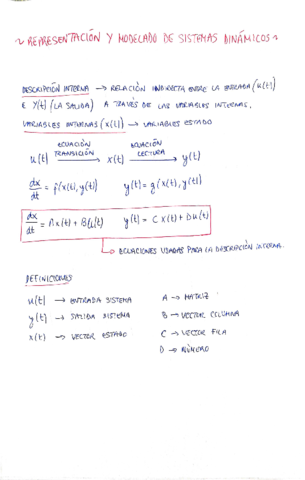 ~ REPRESENTACIÓN Y MODELADO DE SISTEMAS DINÁMICOS ~
DESCRIPCIÓN INTERNA → RELACIÓN INDIRECTA ENTRE LA ENTRADA (u(t))
E Y(t) (LA SALIDA) A TRAVÉS DE LAS VARIABLES INTERNAS.
VARIABLES INTERNAS (x(t)) → VARIABLES ESTADO
ECUACIÓN TRANSICIÓN ECUACIÓN LECTURA
u(t) → x(t) → y(t)
dx/dt = f(x(t), y(t)) y(t) = g(x(t), y(t))
dx/dt = Ax(t) + Bu(t) y(t) = Cx(t) + Du(t)
→ ECUACIONES USADAS PARA LA DESCRIPCIÓN INTERNA.
DEFINICIONES
u(t) → ENTRADA SISTEMA A → MATRIZ
y(t) → SALIDA SISTEMA B → VECTOR COLUMNA
x(t) → VECTOR ESTADO C → VECTOR FILA
D → NÚMERO